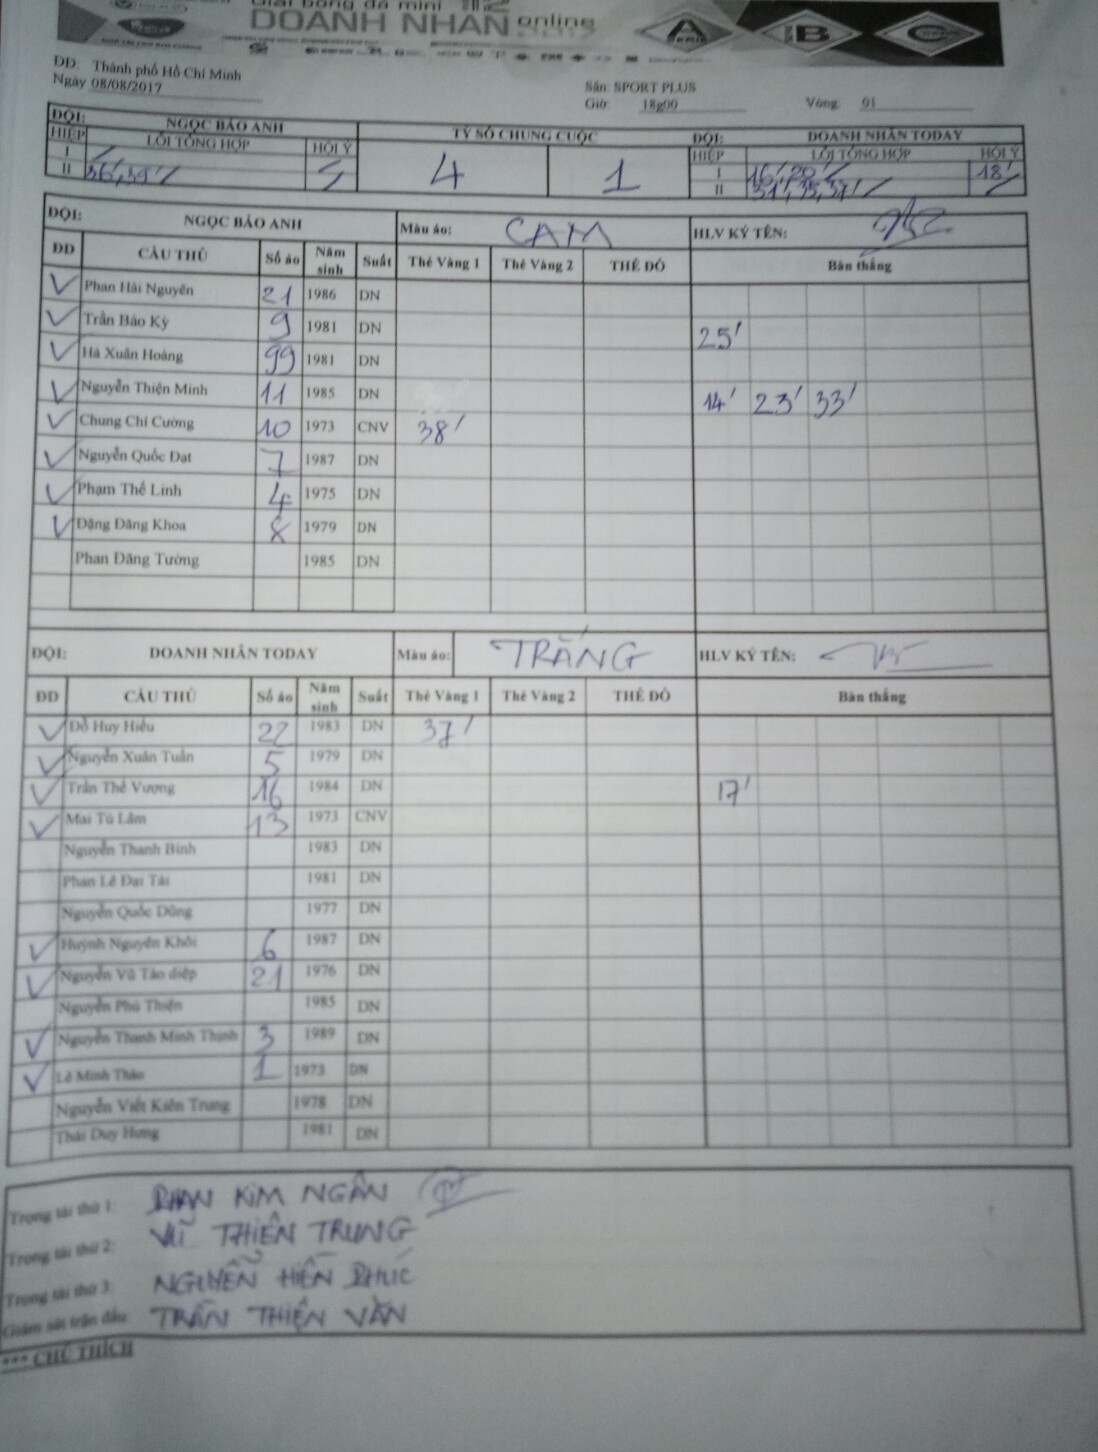 Giải bóng đá mini 112
DOANH NHÂN online
2017
A B C
DĐ: Thành phố Hồ Chí Minh
Ngày 08/08/2017
Sân: SPORT PLUS
Giờ: 18g00 Vòng: 01
ĐỘI: NGỌC BẢO ANH TỶ SỐ CHUNG CUỘC ĐỘI: DOANH NHÂN TODAY
HIỆP LỖI TỔNG HỢP HỘI Ý 4 1 HIỆP LỖI TỔNG HỢP HỘI Ý
I I 16', 20' 18'
II 36', 39' II 31', 35, 37'
ĐỘI: NGỌC BẢO ANH Màu áo: CAM HLV KÝ TÊN:
DD CẦU THỦ Số áo Năm sinh Suất Thẻ Vàng 1 Thẻ Vàng 2 THẺ ĐỎ Bàn thắng
Phan Hải Nguyên 21 1986 DN
Trần Bảo Kỳ 9 1981 DN 25'
Hà Xuân Hoàng 99 1981 DN
Nguyễn Thiện Minh 11 1985 DN 14' 23' 33'
Chung Chí Cường 10 1973 CNV 38'
Nguyễn Quốc Đạt 7 1987 DN
Phạm Thế Linh 4 1975 DN
Đặng Đăng Khoa 8 1979 DN
Phan Đăng Tường 1985 DN
ĐỘI: DOANH NHÂN TODAY Màu áo: TRẮNG HLV KÝ TÊN:
DD CẦU THỦ Số áo Năm sinh Suất Thẻ Vàng 1 Thẻ Vàng 2 THẺ ĐỎ Bàn thắng
Đỗ Huy Hiếu 22 1983 DN 37'
Nguyễn Xuân Tuấn 5 1979 DN
Trần Thế Vượng 16 1984 DN 17'
Mai Tú Lâm 13 1973 CNV
Nguyễn Thanh Bình 1983 DN
Phan Lê Đại Tài 1981 DN
Nguyễn Quốc Dũng 1977 DN
Huỳnh Nguyên Khôi 6 1987 DN
Nguyễn Vũ Táo điệp 21 1976 DN
Nguyễn Phú Thiện 1985 DN
Nguyễn Thanh Minh Thịnh 3 1989 DN
Lê Minh Thảo 1 1973 DN
Nguyễn Viết Kiên Trung 1978 DN
Thái Duy Hưng 1981 DN
Trọng tài thứ 1: PHAN KIM NGÂN
Trọng tài thứ 2: VŨ THIÊN TRUNG
Trọng tài thứ 3: NGUYỄN HIỀN PHÚC
Giám sát trận đấu: TRẦN THIỆN VĂN
*** CHÚ THÍCH